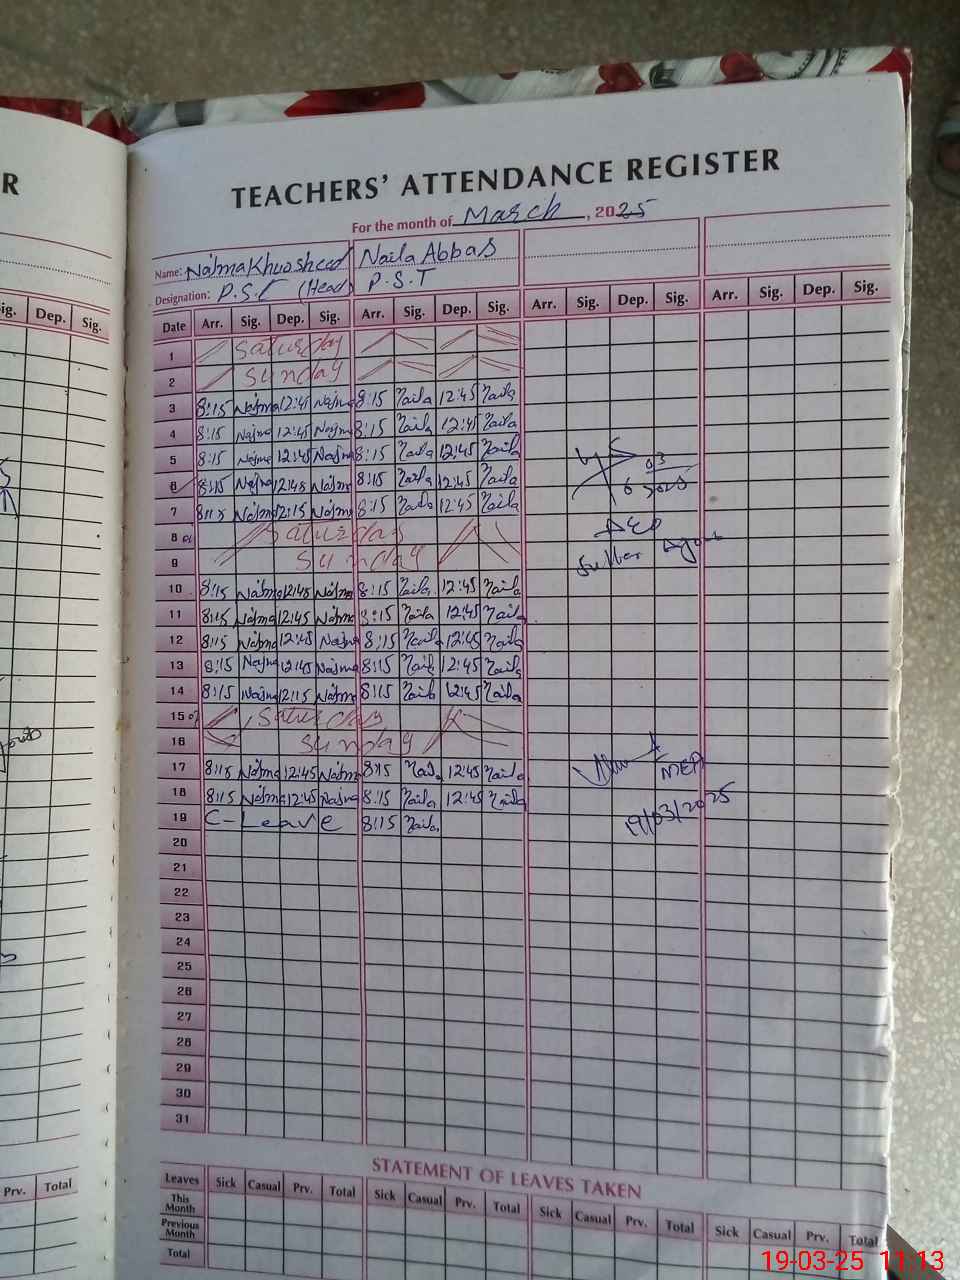 R
TEACHERS' ATTENDANCE REGISTER
For the month of March, 2025
Name: Najma Khursheed Naila Abbas
Designation: P.S.T (Head) P.S.T
Sig. Dep. Sig.
Date Arr. Sig. Dep. Sig. Arr. Sig. Dep. Sig. Arr. Sig. Dep. Sig. Arr. Sig. Dep. Sig.
1 Saturday
2 Sunday
3 8:15 Najma 12:45 Najma 8:15 Naila 12:45 Naila
4 8:15 Najma 12:45 Najma 8:15 Naila 12:45 Naila
5 8:15 Najma 12:45 Najma 8:15 Naila 12:45 Naila
6 8:15 Najma 12:45 Najma 8:15 Naila 12:45 Naila 6 03 2025
7 8:15 Najma 12:15 Najma 8:15 Naila 12:45 Naila
8 Saturday AEO
9 Sunday
10 8:15 Najma 12:45 Najma 8:15 Naila 12:45 Naila
11 8:15 Najma 12:45 Najma 8:15 Naila 12:45 Naila
12 8:15 Najma 12:45 Najma 8:15 Naila 12:45 Naila
13 8:15 Najma 12:45 Najma 8:15 Naila 12:45 Naila
14 8:15 Najma 12:15 Najma 8:15 Naila 12:45 Naila
15 Saturday
16 Sunday
17 8:15 Najma 12:45 Najma 8:15 Naila 12:45 Naila MEA
18 8:15 Najma 12:45 Najma 8:15 Naila 12:45 Naila
19 C-Leave 8:15 Naila 19/03/2025
20
21
22
23
24
25
26
27
28
29
30
31
STATEMENT OF LEAVES TAKEN
Prv. Total
Leaves Sick Casual Prv. Total Sick Casual Prv. Total Sick Casual Prv. Total Sick Casual Prv. Total
This Month
Previous Month
Total
19-03-25 11:13